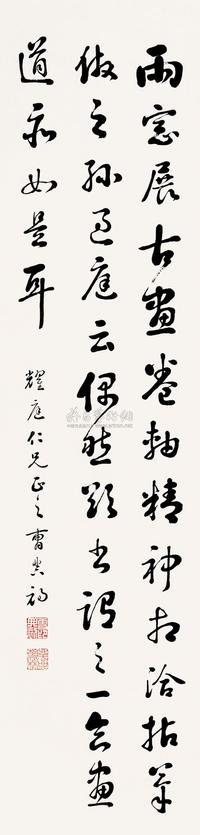 雨窗展古画卷轴精神相洽拈笔
仿之孙过庭云偶然欲书谓之一合画
道亦如是耳
耀庭仁兄正之 曹秉